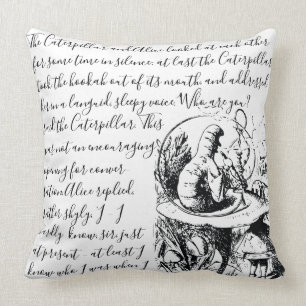 The Caterpillar and Alice looked at each other
for some time in silence: at last the Caterpillar
took the hookah out of its mouth, and addressed
her in a languid, sleepy voice. Who are you?
said the Caterpillar. This
was not an encouraging
opening for conver
sation. Alice replied,
rather shyly, I I
hardly know, sir, just
at present at least I
know who I was when I